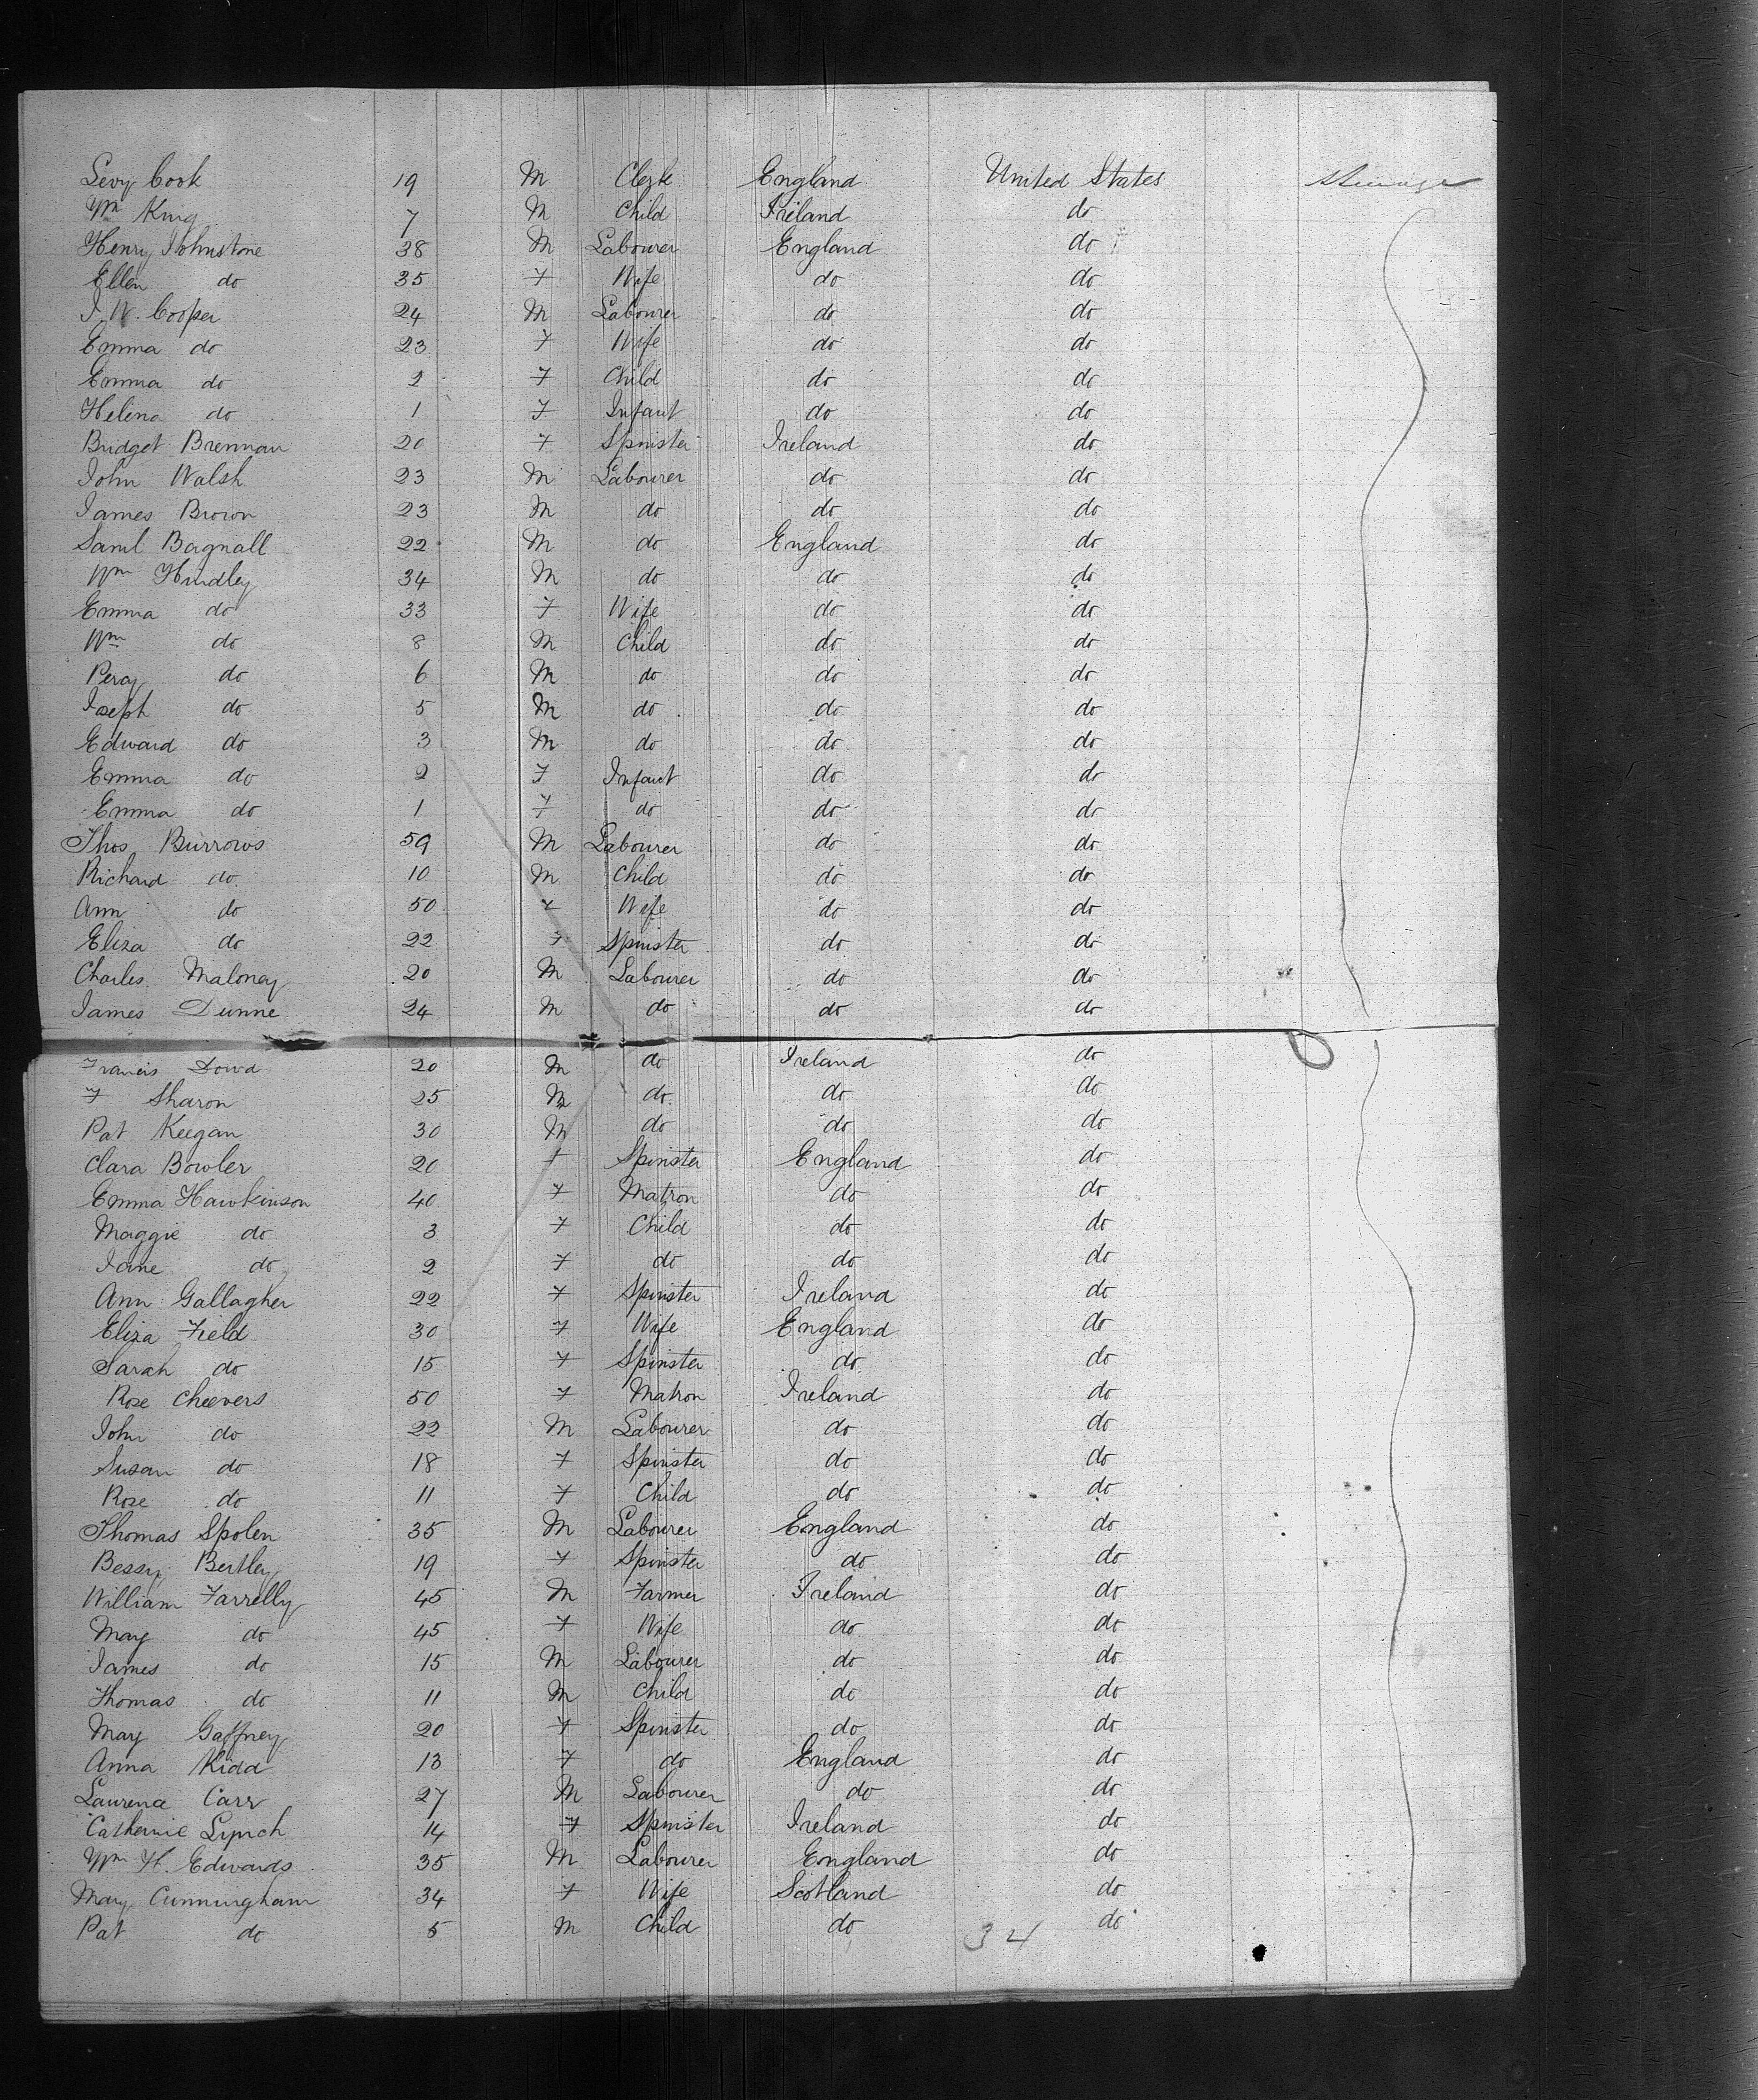 Levy Cook 19 M Clerk England United States Steerage
Wm King 7 M Child Ireland do
Henry Johnstone 38 M Labourer England do
Ellen do 35 F Wife do do
J. W. Cooper 24 M Labourer do do
Emma do 23 F Wife do do
Emma do 2 F Child do do
Helena do 1 F Infant do do
Bridget Brennan 20 F Spinster Ireland do
John Walsh 23 M Labourer do do
James Brown 23 M do do do
Saml Bagnall 22 M do England do
Wm Hindley 34 M do do do
Emma do 33 F Wife do do
Wm do 8 M Child do do
Percy do 6 M do do do
Joseph do 5 M do do do
Edward do 3 M do do do
Emma do 2 F Infant do do
Emma do 1 F do do do
Thos Burrows 59 M Labourer do do
Richard do 10 M Child do do
Ann do 50 F Wife do do
Eliza do 22 F Spinster do do
Charles Maloney 20 M Labourer do do
James Dunne 24 M do do do
Francis Dowd 20 M do Ireland do
F Sharon 25 M do do do
Pat Keegan 30 M do do do
Clara Bowler 20 F Spinster England do
Emma Hawkinson 40 F Matron do do
Maggie do 3 F Child do do
Jane do 2 F do do do
Ann Gallagher 22 F Spinster Ireland do
Eliza Field 30 F Wife England do
Sarah do 15 F Spinster do do
Rose Cheevers 50 F Matron Ireland do
John do 22 M Labourer do do
Susan do 18 F Spinster do do
Rose do 11 F Child do do
Thomas Spolen 35 M Labourer England do
Bessy Bertley 19 F Spinster do do
William Farrelly 45 M Farmer Ireland do
Mary do 45 F Wife do do
James do 15 M Labourer do do
Thomas do 11 M Child do do
Mary Gaffney 20 F Spinster do do
Anna Kidd 13 F do England do
Laurence Carr 27 M Labourer do do
Catherine Lynch 14 F Spinster Ireland do
Wm H. Edwards 35 M Labourer England do
Mary Cunningham 34 F Wife Scotland do
Pat do 5 M Child do do
34